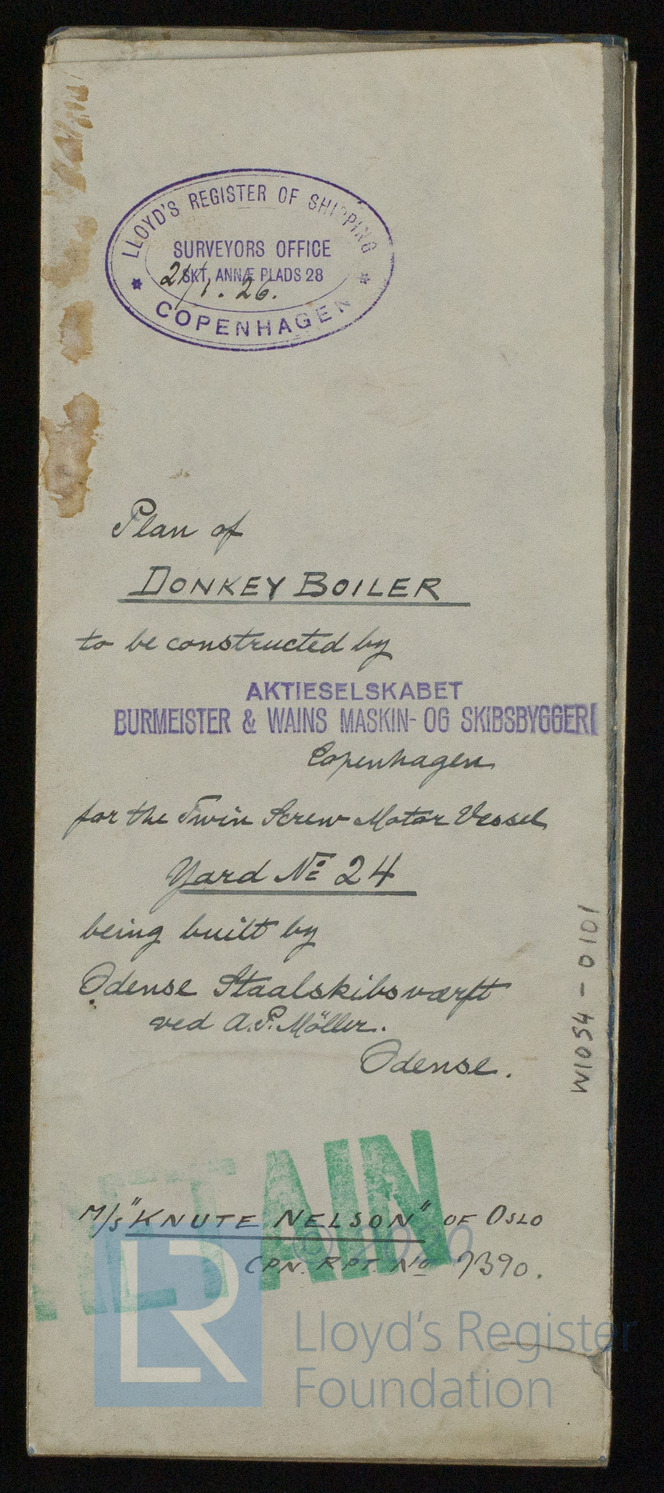 LLOYD'S REGISTER OF SHIPPING
SURVEYORS OFFICE
SKT. ANNÆ PLADS 28
COPENHAGEN
Plan of
DONKEY BOILER
to be constructed by
AKTIESELSKABET
BURMEISTER & WAINS MASKIN- OG SKIBSBYGGERI
Copenhagen
for the Twin Screw Motor Vessel
Yard No 24
being built by
Odense Staalskibsværft
ved A.P. Möller.
Odense.
W1054-0101
RETAIN
M/S "KNUTE NELSON" OF OSLO
CPN. RPT No 7390.
LR
Lloyd's Register
Foundation